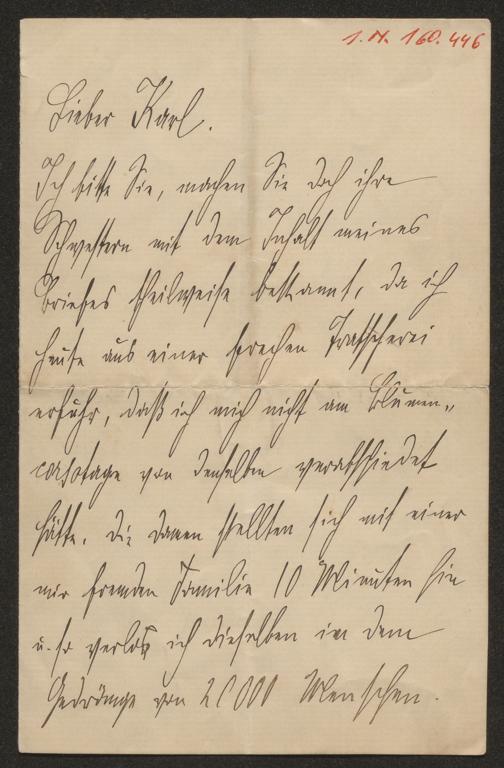 I. N. 160.446
Lieber Karl.
Ich bitte Sie, machen Sie doch ihre
Schwestern mit dem Inhalt meines
Briefes theilweise bekannt, da ich
heute aus einer frechen Tratscherei
erfuhr, daß ich mich nicht am Blumen„
corsotage von denselben verabschiedet
hätte. Die Damen stellten sich mit einer
mir fremden Familie 10 Minuten hin
u. so verlor ich dieselben in dem
Gedränge von 20000 Menschen.